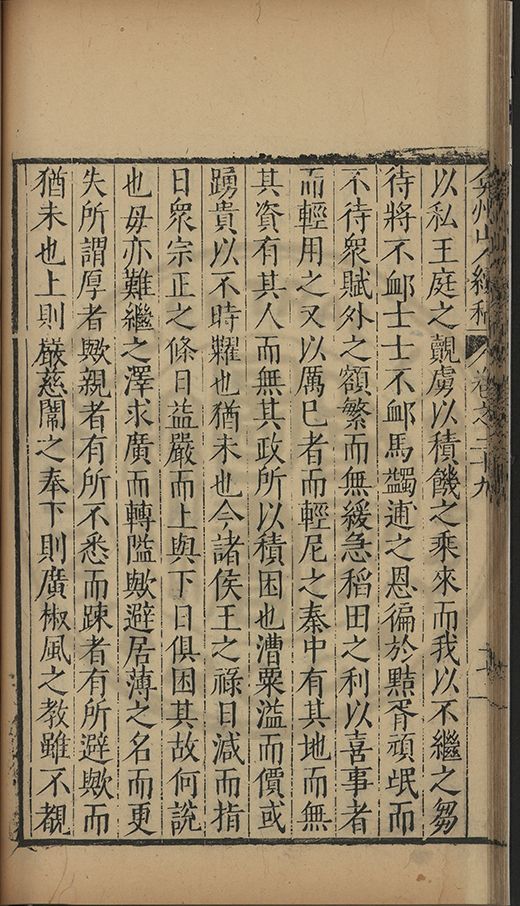 弇州山人續稿 卷之二十九
以私王庭之覬虜以積饑之乘來而我以不繼之芻
待將不䘏士士不䘏馬蠲逋之恩徧於黠胥頑氓而
不待衆賦外之額繁而無緩急稻田之利以喜事者
而輕用之又以厲巳者而輕尼之秦中有其地而無
其資有其人而無其政所以積困也漕粟溢而價或
踴貴以不時糶也猶未也今諸侯王之祿日減而指
日衆宗正之條日益嚴而上與下日俱困其故何說
也毋亦難繼之澤求廣而轉隘歟避居薄之名而更
失所謂厚者歟親者有所不悉而踈者有所避歟而
猶未也上則嚴慈闈之奉下則廣椒風之教雖不覩